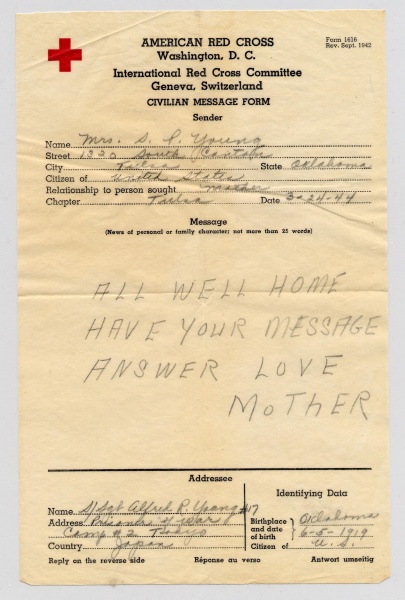 AMERICAN RED CROSS
Form 1616
Rev. Sept. 1942
Washington, D. C.
International Red Cross Committee
Geneva, Switzerland
CIVILIAN MESSAGE FORM
Sender
Name Mrs. S. P. Young
Street 1330 South
City Tulsa State Oklahoma
Citizen of United States
Relationship to person sought Mother
Chapter Tulsa Date 3-24-44
Message
(News of personal or family character; not more than 25 words)
ALL WELL HOME
HAVE YOUR MESSAGE
ANSWER LOVE
MOTHER
Addressee
Identifying Data
Name S/Sgt Alfred P. Young #17
Address Prisoners of War
Camp # 2 Tokyo
Country Japan
Birthplace and date of birth } Oklahoma
6-5-1919
Citizen of U.S.
Reply on the reverse side Réponse au verso Antwort umseitig